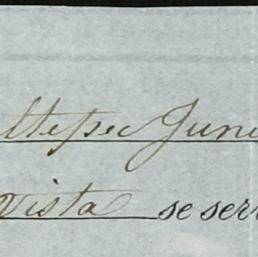 ltepec Juni
Vista se ser